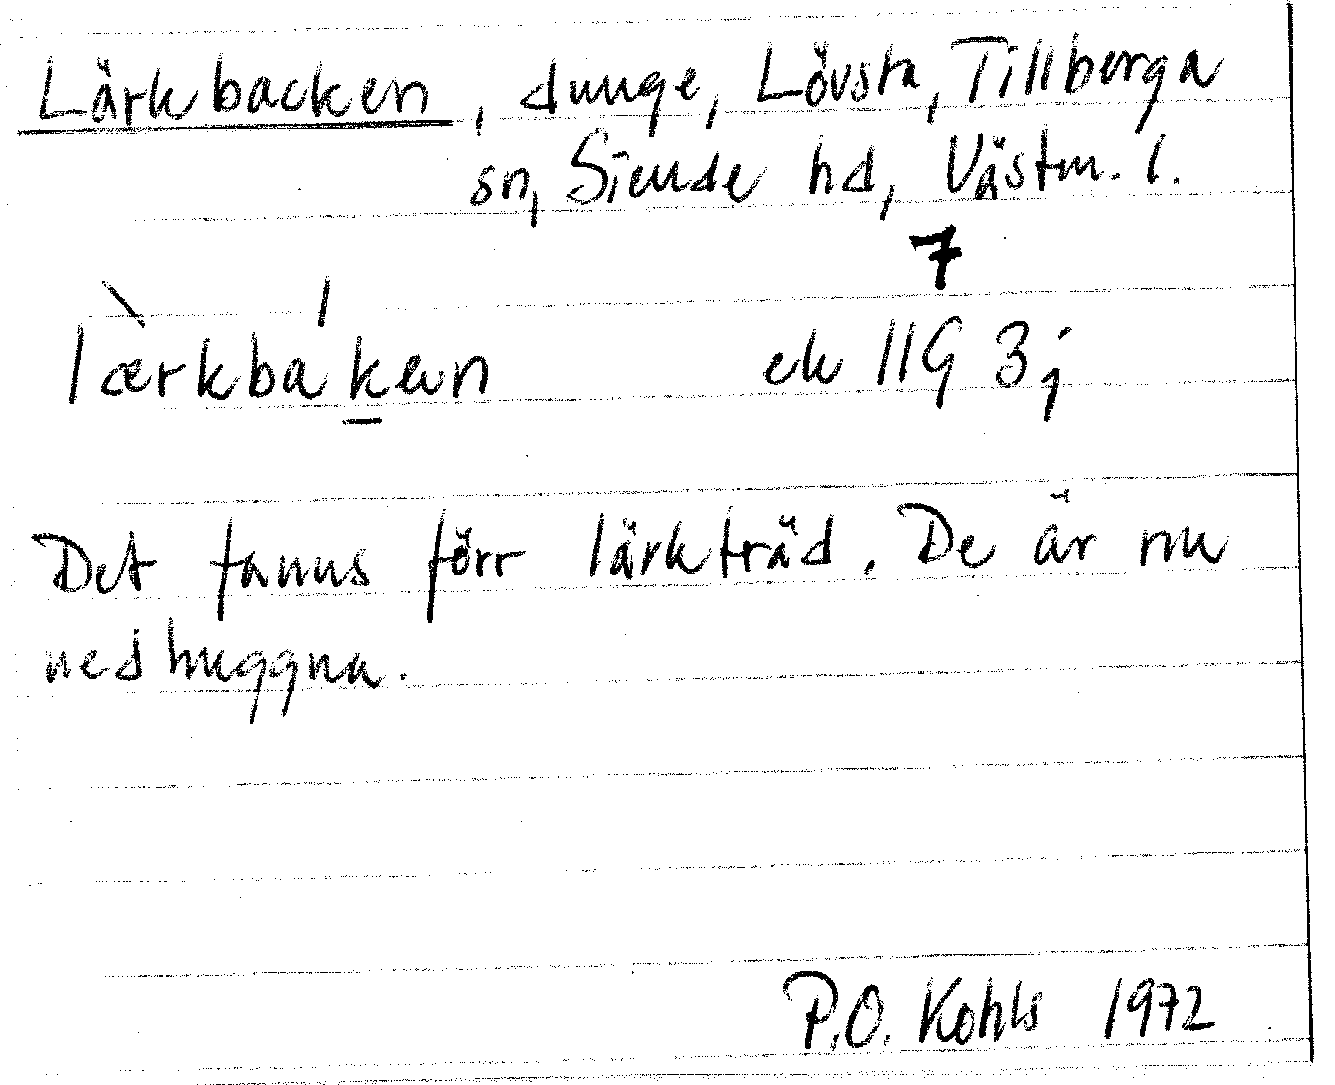 Lärkbacken, dunge, Lövsta, Tillberga
sn, Siende hd, Västm. l.
7
lærkbaken ek 11G 3j
Det fanns förr lärkträd. De är nu
nedhuggna.
P.O. Kohls 1972